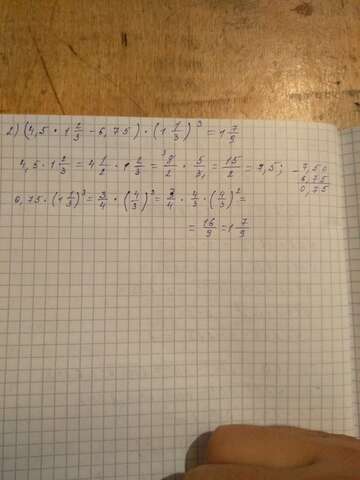 2) (4,5 · 1 2/3 − 6,75) · (1 1/3)³ = 1 7/9
4,5 · 1 2/3 = 4 1/2 · 1 2/3 = 9/2 · 5/3 = 15/2 = 7,5; − 7,50 6,75 0,75
0,75 · (1 1/3)³ = 3/4 · (4/3)³ = 3/4 · 4/3 · (4/3)² =
= 16/9 = 1 7/9